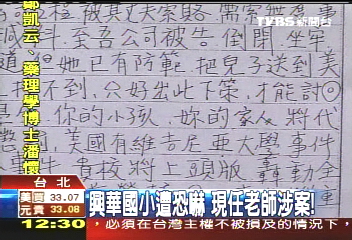 TVBS新聞台
鄭凱云、藥理學博士潘懷
減料.至吾公司被告倒閉.坐牢
她已有防範.把兒子送到美
找不到.只好出此下策.才能討
你的小孩.妳的家人將代
美國有維吉尼亞大學事件
貴校將上頭版 轟動全
台北
美買 33.07
元賣 33.08
興華國小遭恐嚇 現任老師涉案!
12:30
必須在台灣主權不被損及的情況下!